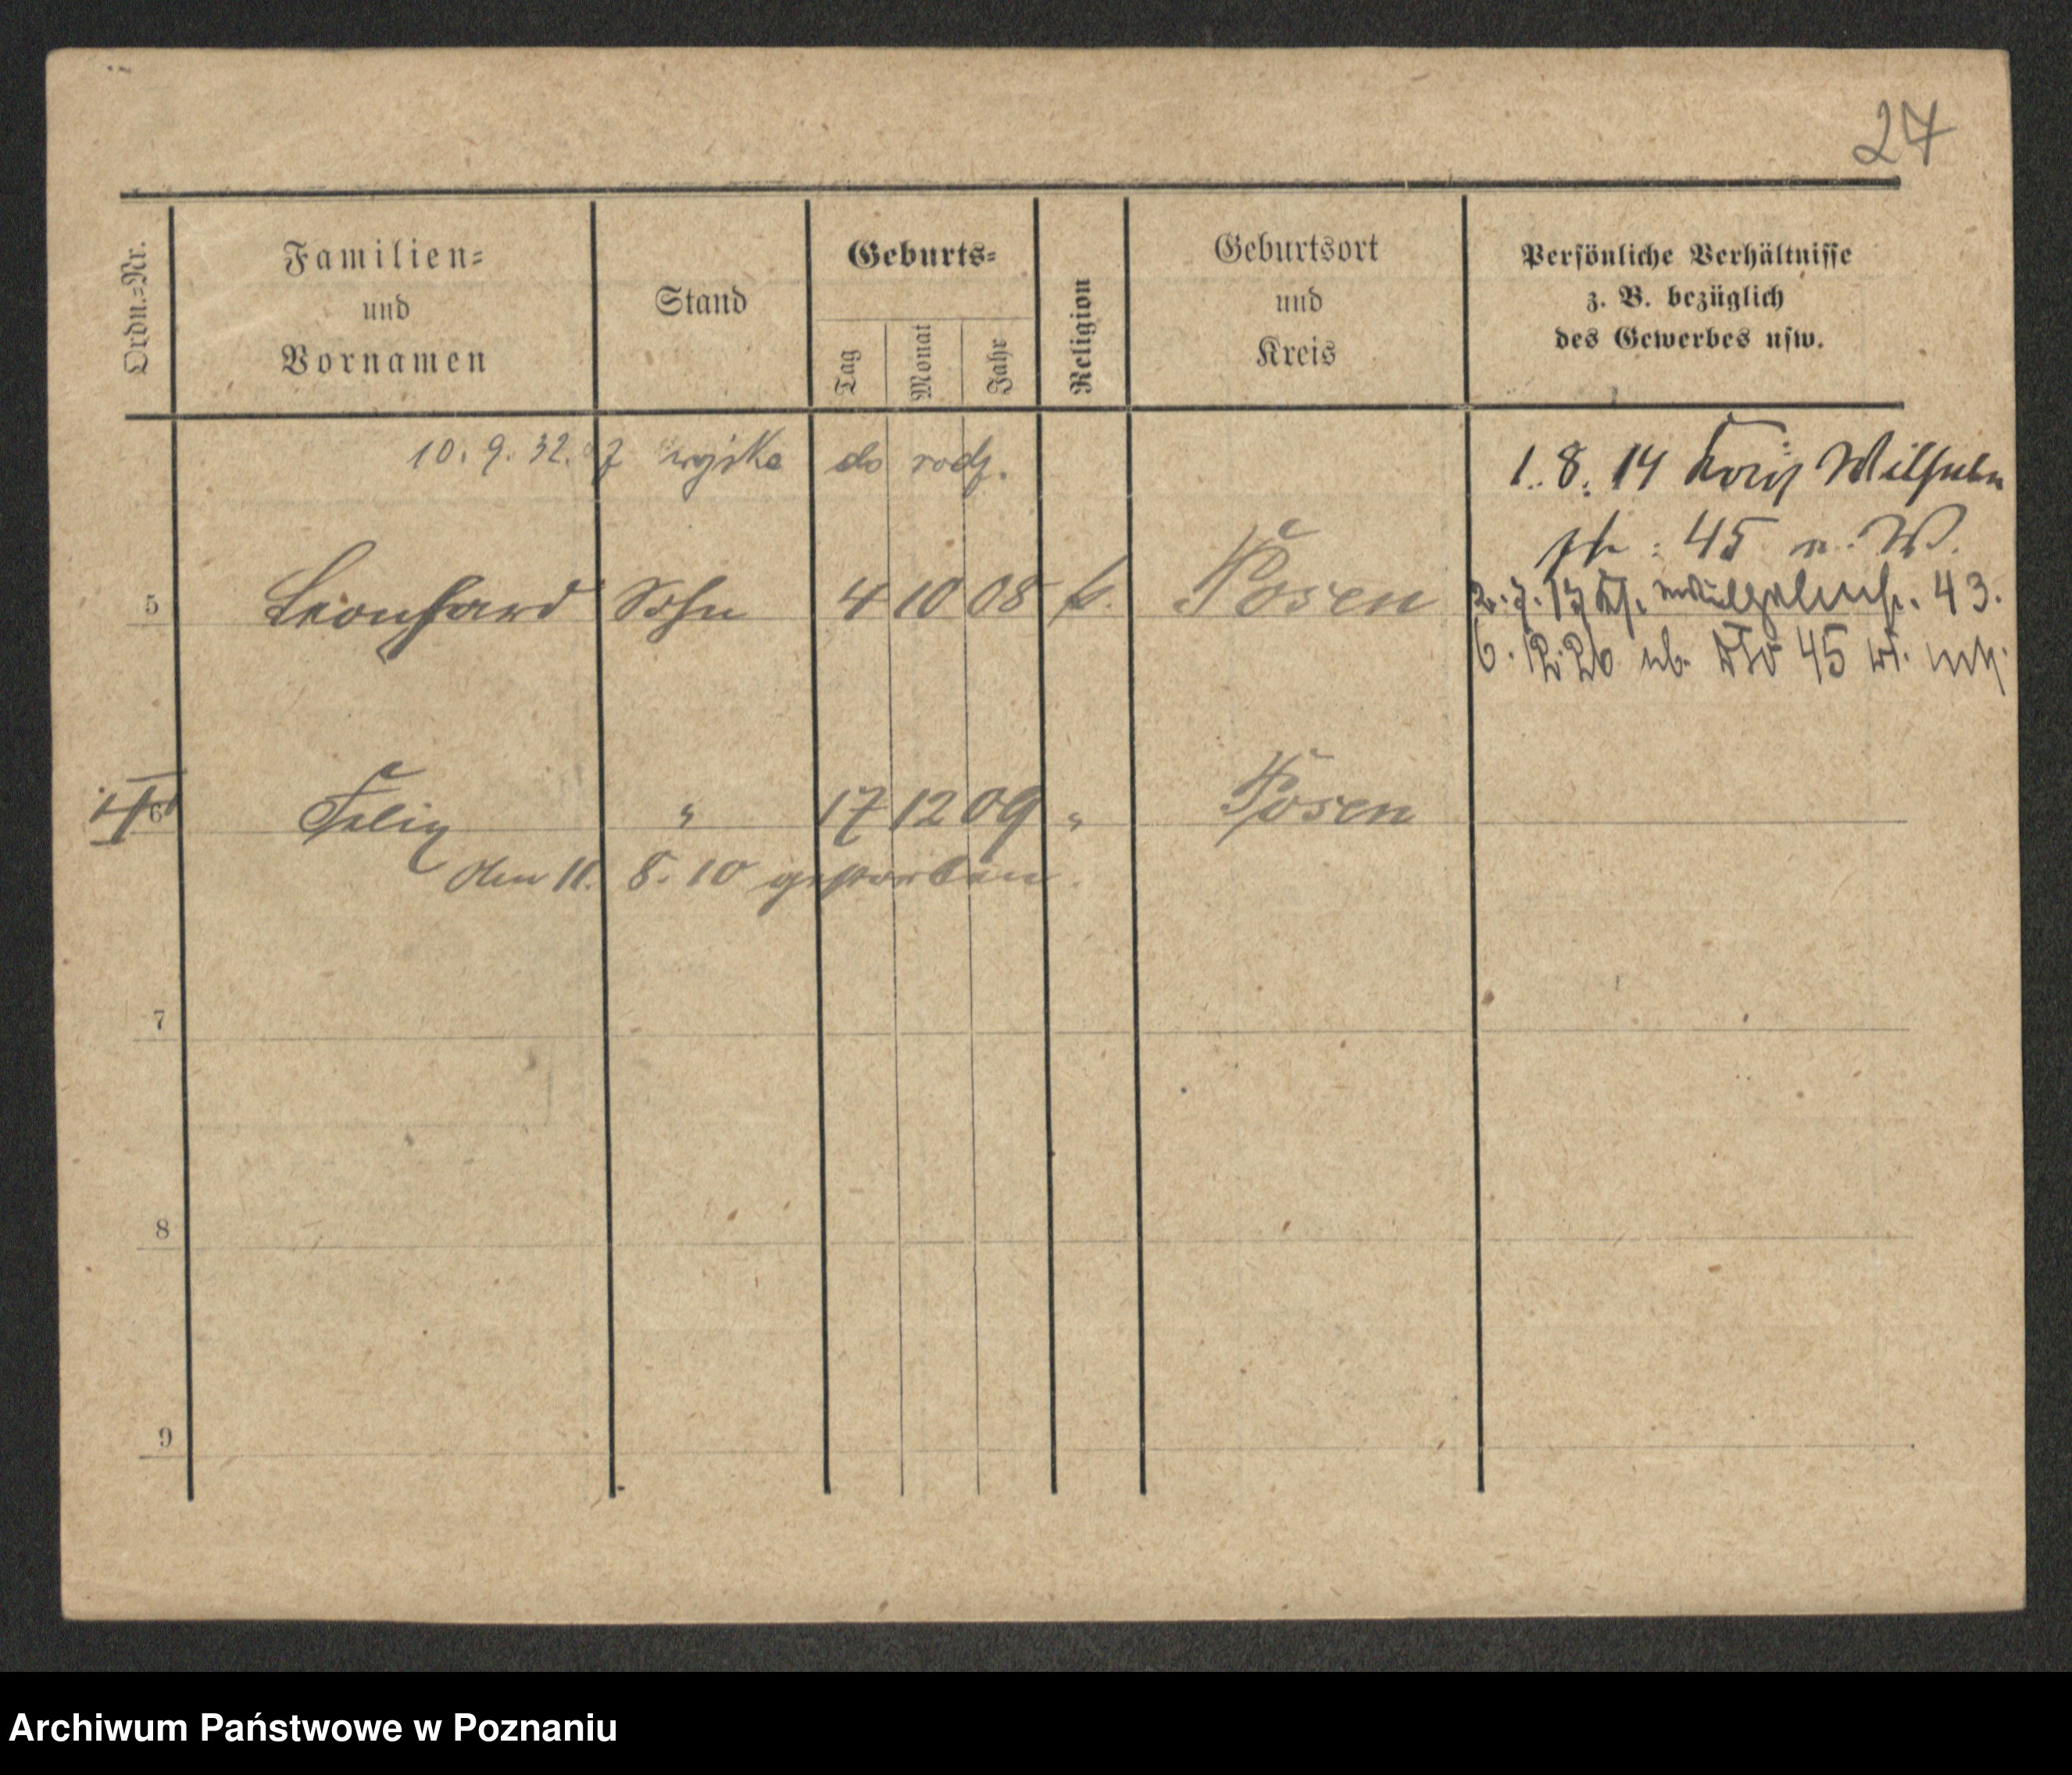 27
Ordn.=Nr.
Familien=
und
Vornamen
Stand
Geburts=
Tag
Monat
Jahr
Religion
Geburtsort
und
Kreis
Persönliche Verhältnisse
z. B. bezüglich
des Gewerbes usw.
10. 9. 32. z wojska do rodz.
1. 8. 14 Wilhelm
45 n. W.
5 Leonhard Sohn 4 10 08 k. Posen
43.
6. 12. 26 45
6 Felix " 17 12 09 " Posen
den 11. 8. 10 gestorben.
7
8
9
Archiwum Państwowe w Poznaniu